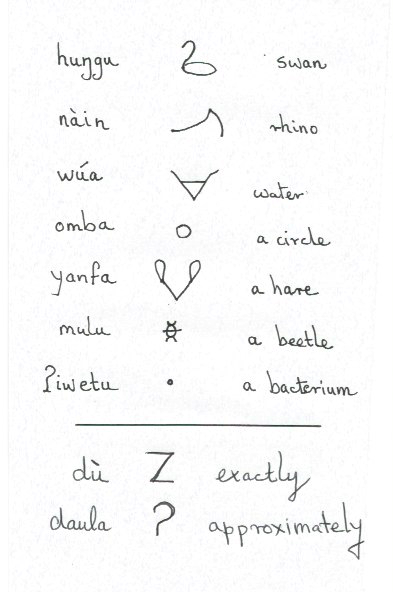 huŋgu swan
nàin rhino
wúa water
omba a circle
yanfa a hare
mulu a beetle
Piwetu a bacterium
dù Z exactly
daula ? approximately